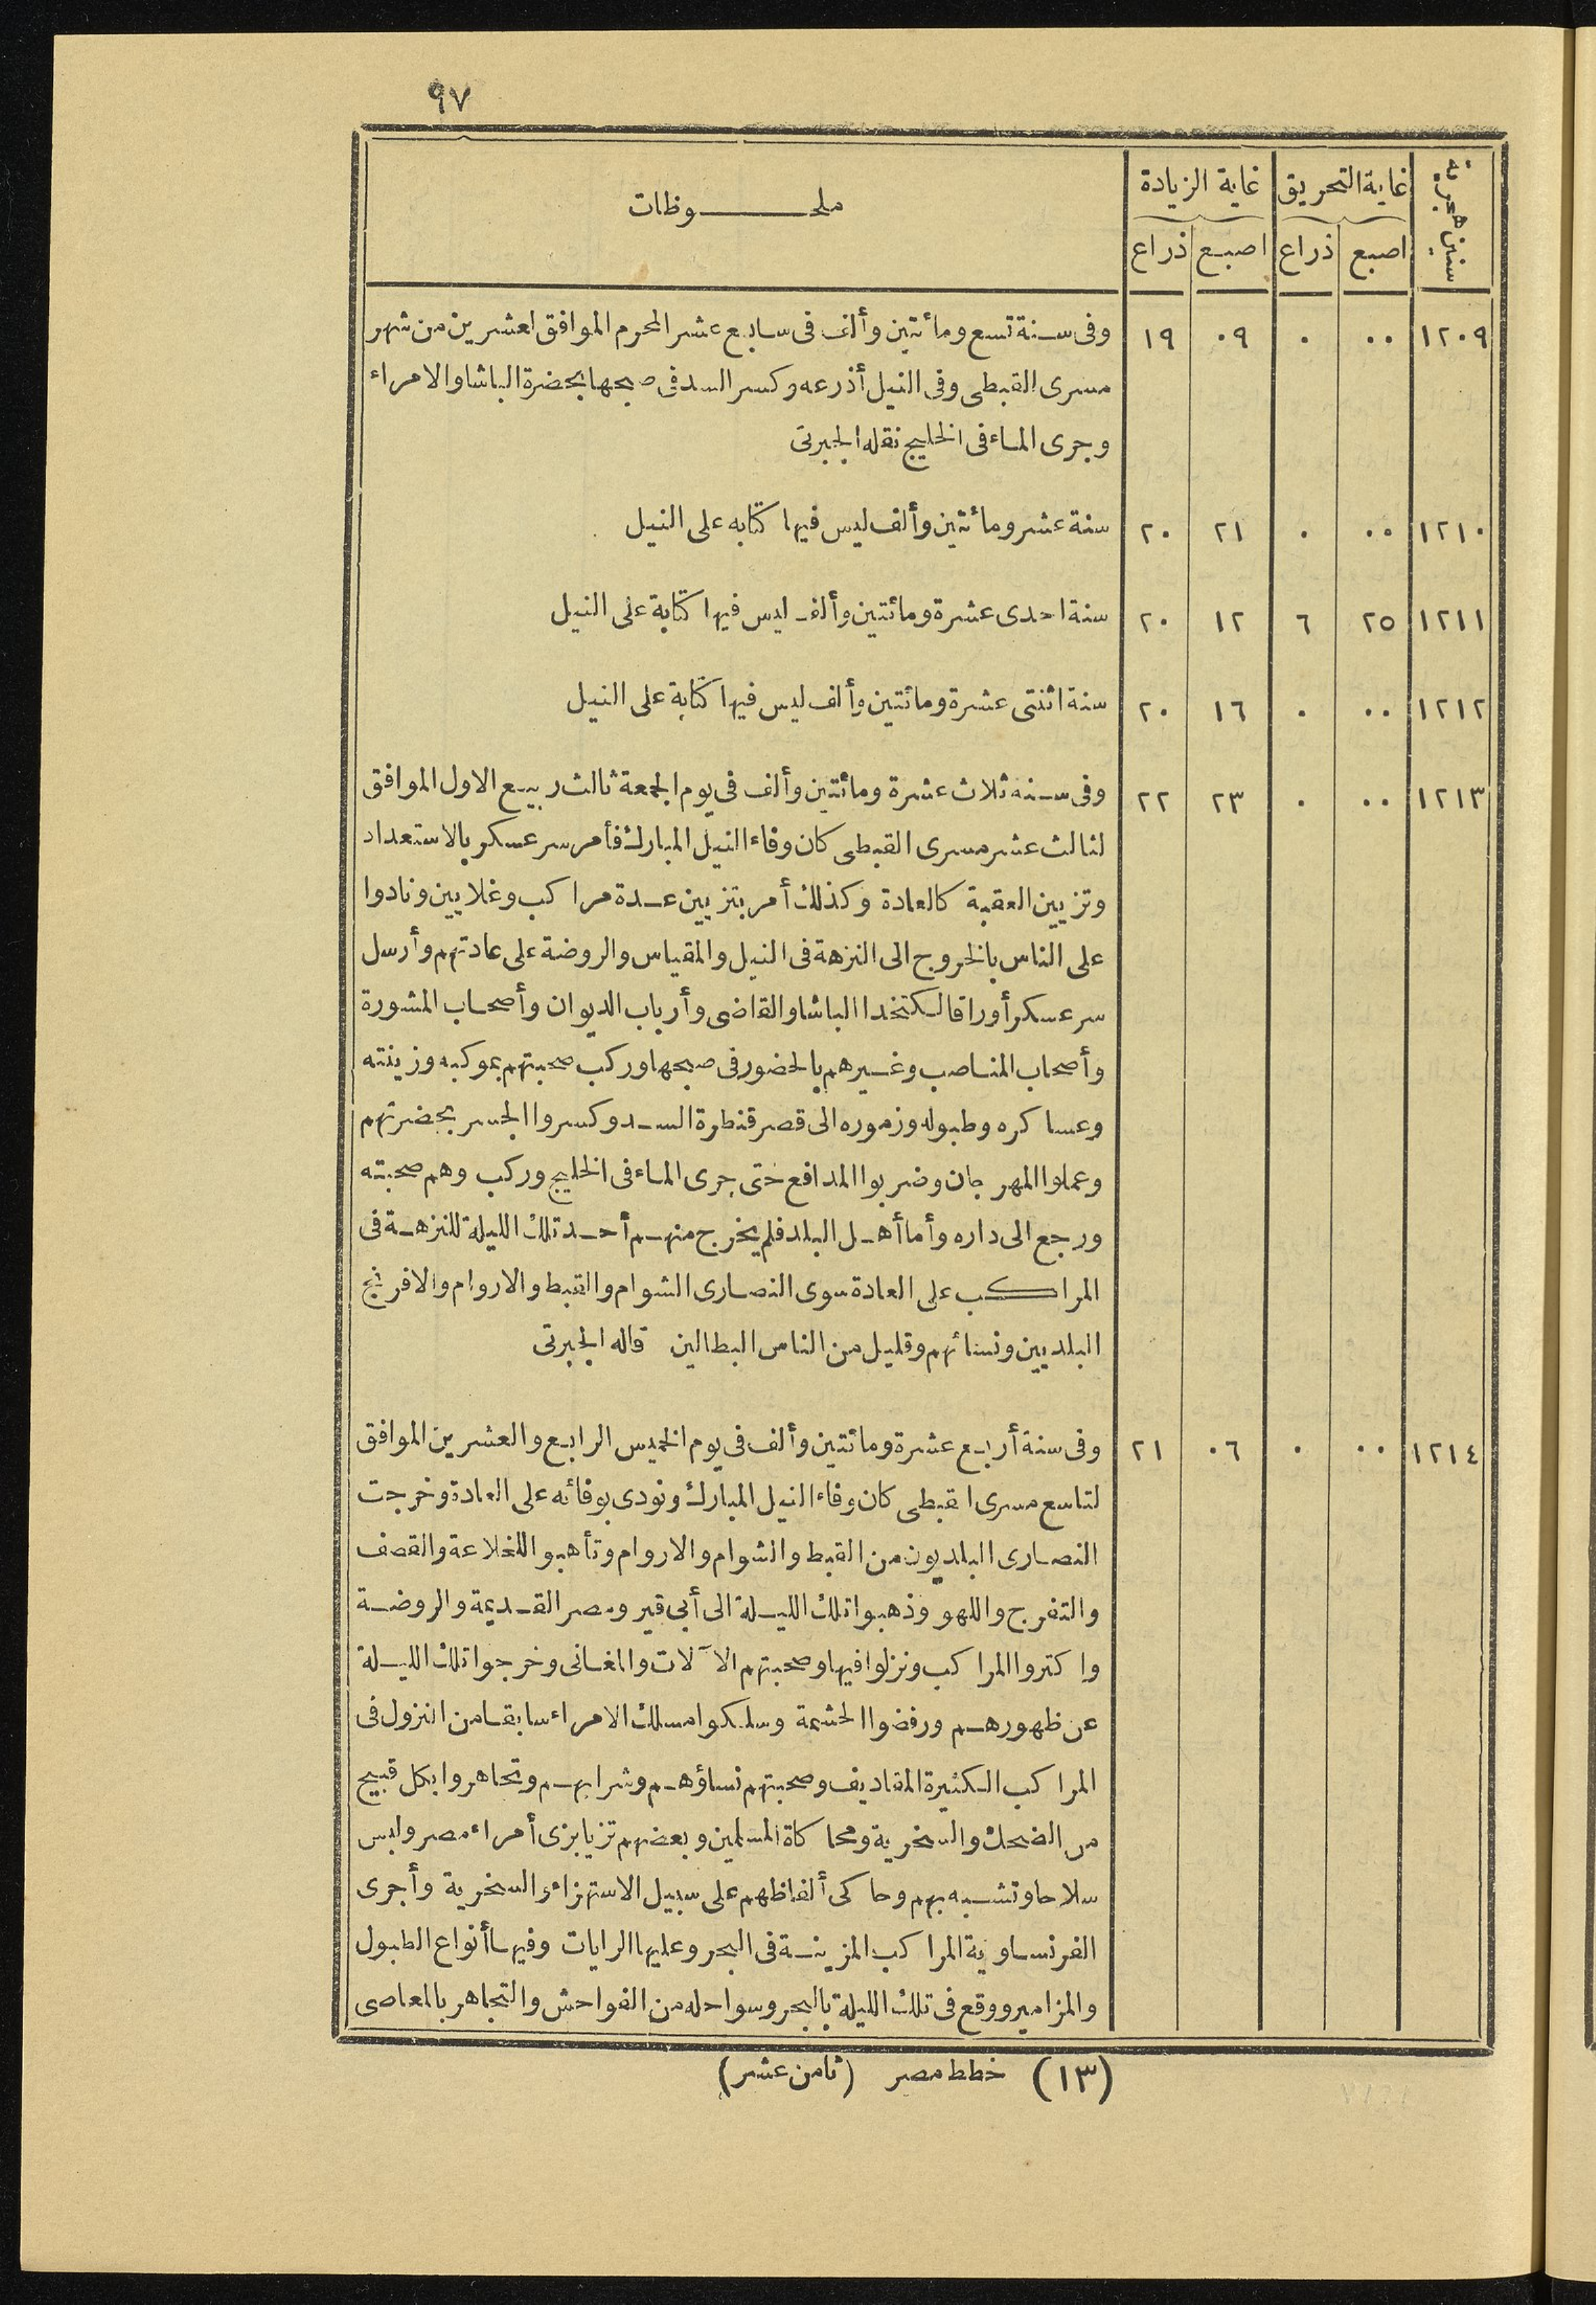 ٩٧
سنين هجرية | غاية التحريق | غاية الزيادة | ملحـــوظات
اصبع | ذراع | اصبع | ذراع
١٢٠٩ | ٠٠ | ٠ | ٠٩ | ١٩ | وفى سنة تسع ومائتين وألف فى سابع عشر المحرم الموافق لعشرين من شهر
مسرى القبطى وفى النيل أذرعه وكسر السد فى صبحها بحضرة الباشا والامراء
وجرى الماء فى الخليج نقله الجبرتى
١٢١٠ | ٠٠ | ٠ | ٢١ | ٢٠ | سنة عشر ومائتين وألف ليس فيها كتابه على النيل
١٢١١ | ٢٥ | ٦ | ١٢ | ٢٠ | سنة احدى عشرة ومائتين وألف ليس فيها كتابة على النيل
١٢١٢ | ٠٠ | ٠ | ١٦ | ٢٠ | سنة اثنتى عشرة ومائتين وألف ليس فيها كتابة على النيل
١٢١٣ | ٠٠ | ٠ | ٢٣ | ٢٢ | وفى سنه ثلاث عشرة ومائتين وألف فى يوم الجمعة ثالث ربيع الاول الموافق
لثالث عشر مسرى القبطى كان وفاء النيل المبارك فأمر سر عسكر بالاستعداد
وتزيين العقبة كالعادة وكذلك أمر بتزيين عدة مراكب وغلايين ونادوا
على الناس بالخروج الى النزهة فى النيل والمقياس والروضة على عادتهم وأرسل
سر عسكر أوراقا لكتخدا الباشا والقاضى وأرباب الديوان وأصحاب المشورة
وأصحاب المناصب وغيرهم بالحضور فى صبحها وركب صحبتهم بموكبه وزينته
وعساكره وطبوله وزموره الى قصر قنطرة السد وكسروا الجسر بحضرتهم
وعملوا المهرجان وضربوا المدافع حتى جرى الماء فى الخليج وركب وهم صحبته
ورجع الى داره وأما أهل البلد فلم يخرج منهم أحد تلك الليلة للنزهة فى
المراكب على العادة سوى النصارى الشوام والقبط والاروام والافرنج
البلديين ونسائهم وقليل من الناس البطالين قاله الجبرتى
١٢١٤ | ٠٠ | ٠ | ٠٦ | ٢١ | وفى سنة أربع عشرة ومائتين وألف فى يوم الخميس الرابع والعشرين الموافق
لتاسع مسرى القبطى كان وفاء النيل المبارك ونودى بوفائه على العادة وخرجت
النصارى البلديون من القبط والشوام والاروام وتأهبوا للخلاعة والقصف
والتفرج واللهو وذهبوا تلك الليلة الى أبى قير ومصر القديمة والروضة
واكتروا المراكب ونزلوا فيها وصحبتهم الآلات والمغانى وخرجوا تلك الليلة
عن ظهورهم ورفضوا الحشمة وسلكوا مسلك الامراء سابقا من النزول فى
المراكب الكثيرة المقاديف وصحبتهم نساؤهم وشرابهم وتجاهروا بكل قبيح
من الضحك والسخرية ومحاكاة المسلمين وبعضهم تزيا بزى أمراء مصر ولبس
سلاحا وتشبه بهم وحاكى ألفاظهم على سبيل الاستهزاء والسخرية وأجرى
الفرنساوية المراكب المزينة فى البحر وعليها الرايات وفيها أنواع الطبول
والمزامير ووقع فى تلك الليلة بالبحر وسواحله من الفواحش والتجاهر بالمعاصى
(١٣) خطط مصر (ثامن عشر)